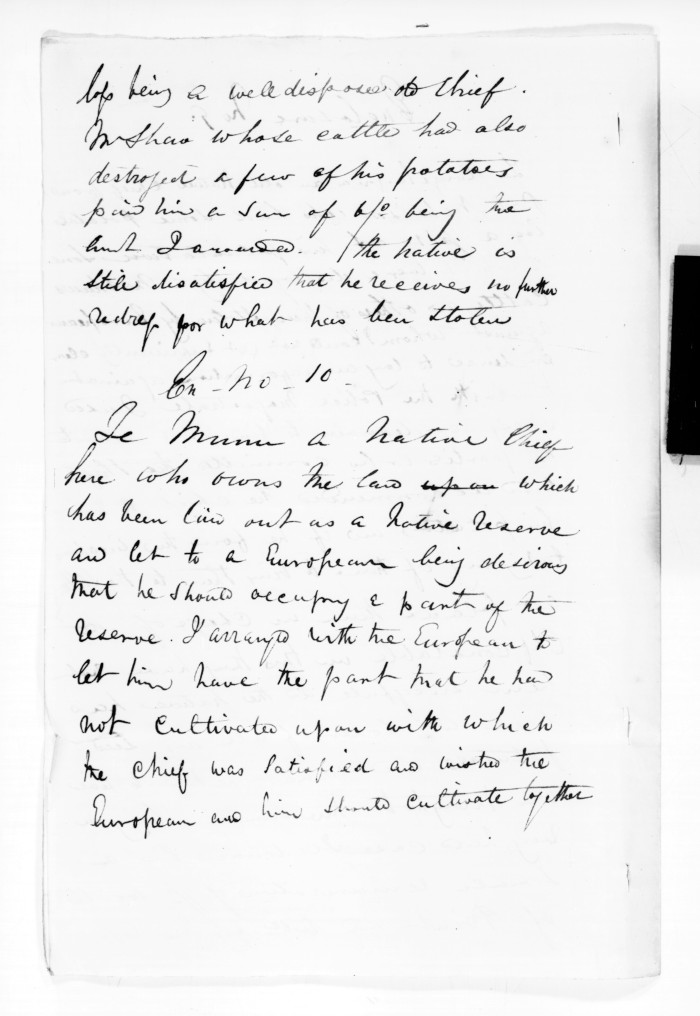 loss being a well disposed chief.
Mr Shaw whose cattle had also
destroyed a few of his potatoes
paid him a sum of 6/0 being the
amt I awarded. The native is
still disatisfied that he receives no further
redress for what has been stolen
En - No - 10 -
Te Munu a Native Chief
here who owns the land upon which
has been laid out as a Native reserve
and let to a European being desirous
that he should occupy a part of the
reserve. I arranged with the European to
let him have the part that he had
not cultivated upon with which
the chief was satisfied and wished the
European and him should cultivate together